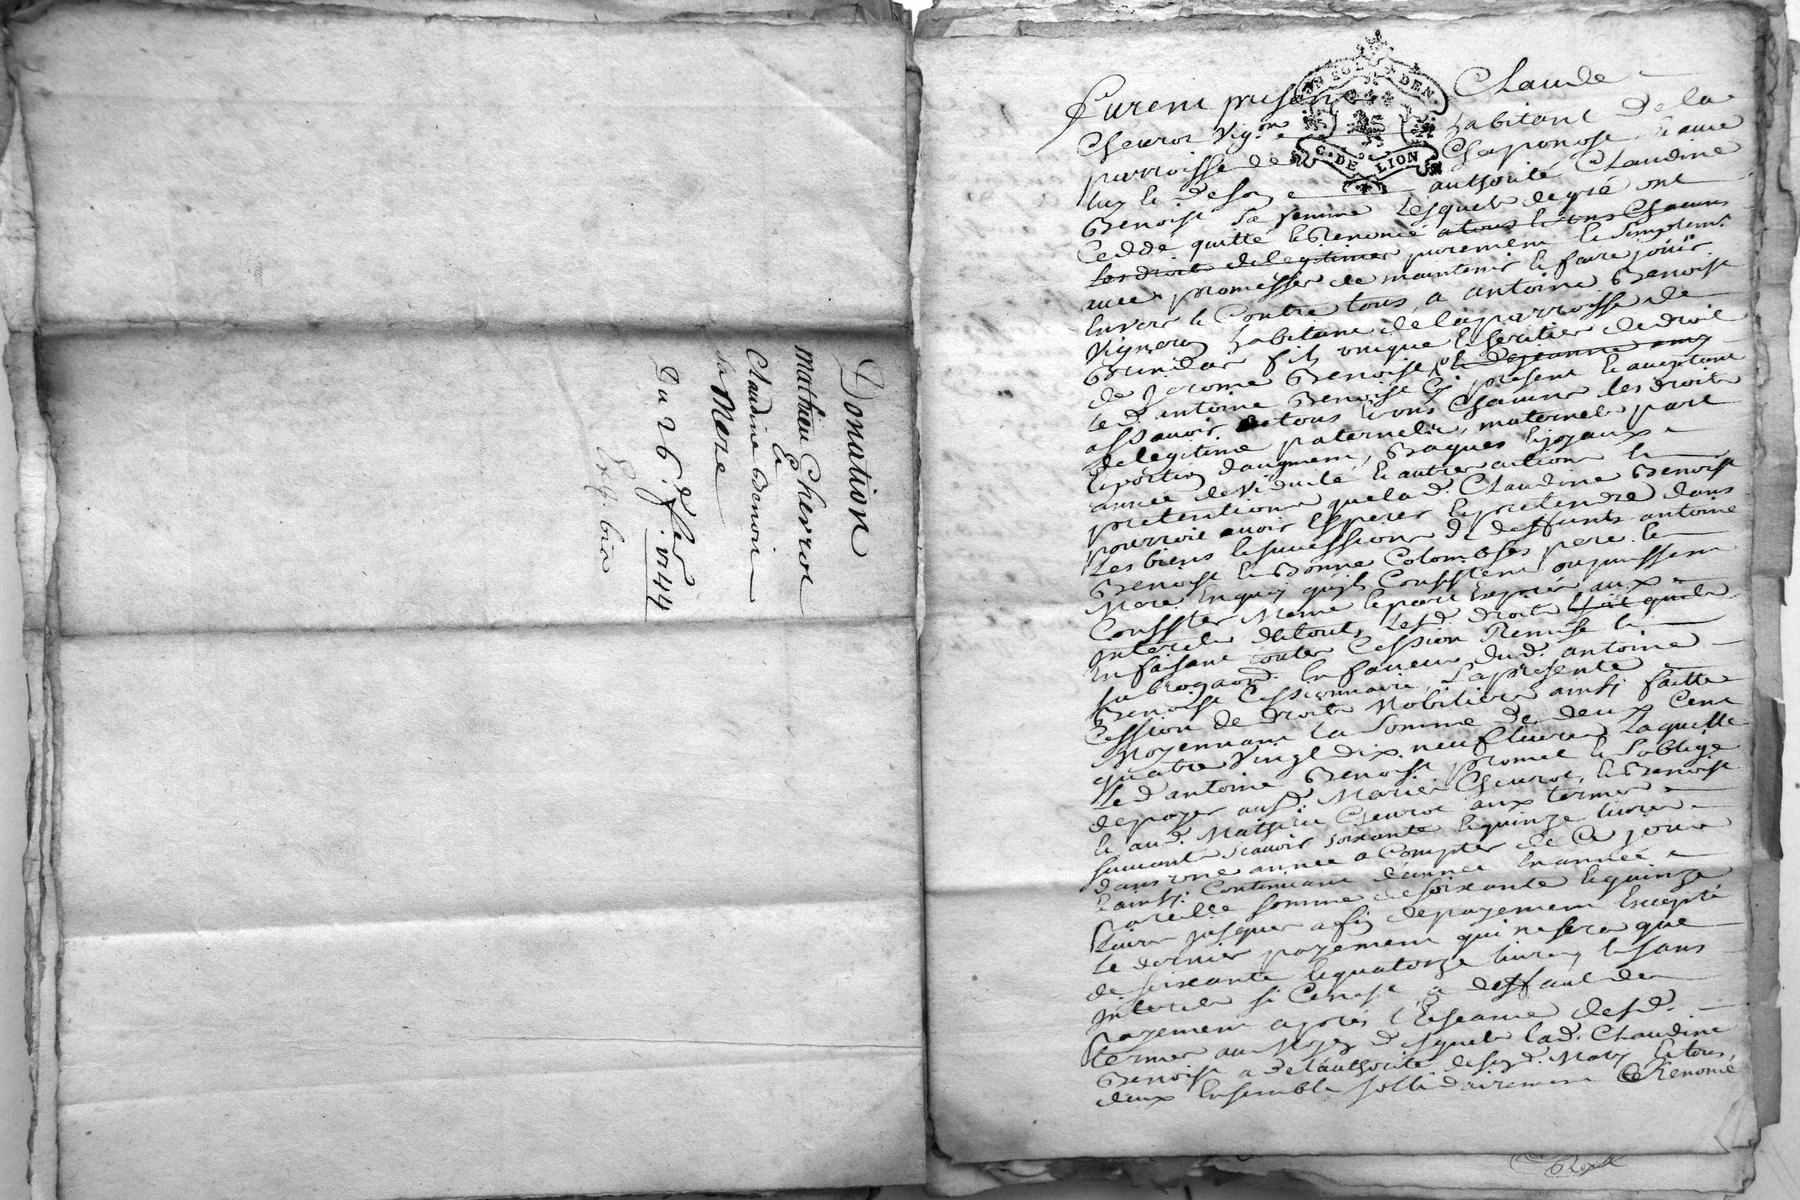 Donation
Mathieu Chevrot
&
Claudine Benoist
sa Mere
Du 26e 7bre 1744
Furent presens Claude
Chevrot Vigon habitant de la
parroisse de Chaponost & avec
luy & de son authorité Claudine
Benoist sa femme Lesquels de gré ont
Ceddé quitté & Renoncé a tous & uns Chacuns
Les droits de legitimes purement & simplemt
avec promesses de maintenir & faire joüir
Envers & Contre tous a antoine Benoist
Vigneron habitant de la parroisse de
Brindas fils unique & heritier de droit
de Jerome Benoist
led antoine Benoist Cy present & acceptant
assavoir de tous & uns Chacuns les droits
de legitime paternels, maternels part
& portion d'augment, Bagues & joyaux
année de Viduité & autres actions &
pretentions que lad. Claudine Benoist
pourroit avoir Esperer & pretendre dans
Les biens & succession de deffunts antoine
Benoist & Bonne Colombet pere &
Mere, En quoy qu'ils Consistent ou puissent
Consister Meme le part aux
Interets de tous Lesd. droits
En faisant toutes Cession Remise &
subrogaon. En faveur dud. antoine
Benoist Cessionnaire, La presente
Cession de droits Mobiliers ainsy faitte
Moyennant la somme de deux Cent
quatre Vingt dix neuf livres Laquelle
Led antoine Benoist promet & s'oblige
de payer ausd. Mariés Chevrot & Benoist
& aud. Mathieu Chevrot aux termes
suivants scavoir soixante & quinze livres
dans une année a Compter de Ce jour
& ainsy Continuant d'année En année
Pareille somme de soixante & quinze
Livres jusques a fin de payement Excepté
Le dernier payement qui ne sera que
de soixante & quatorze livres, & sans
Interets si Ce n'est a deffaut de
Payement aprés l'Escance desd.
termes au Moyen desquels lad. Claudine
Benoist a de l'authorité de sond. Mary & tous
deux Ensemble sollidairement Renoncé
G. DE LION